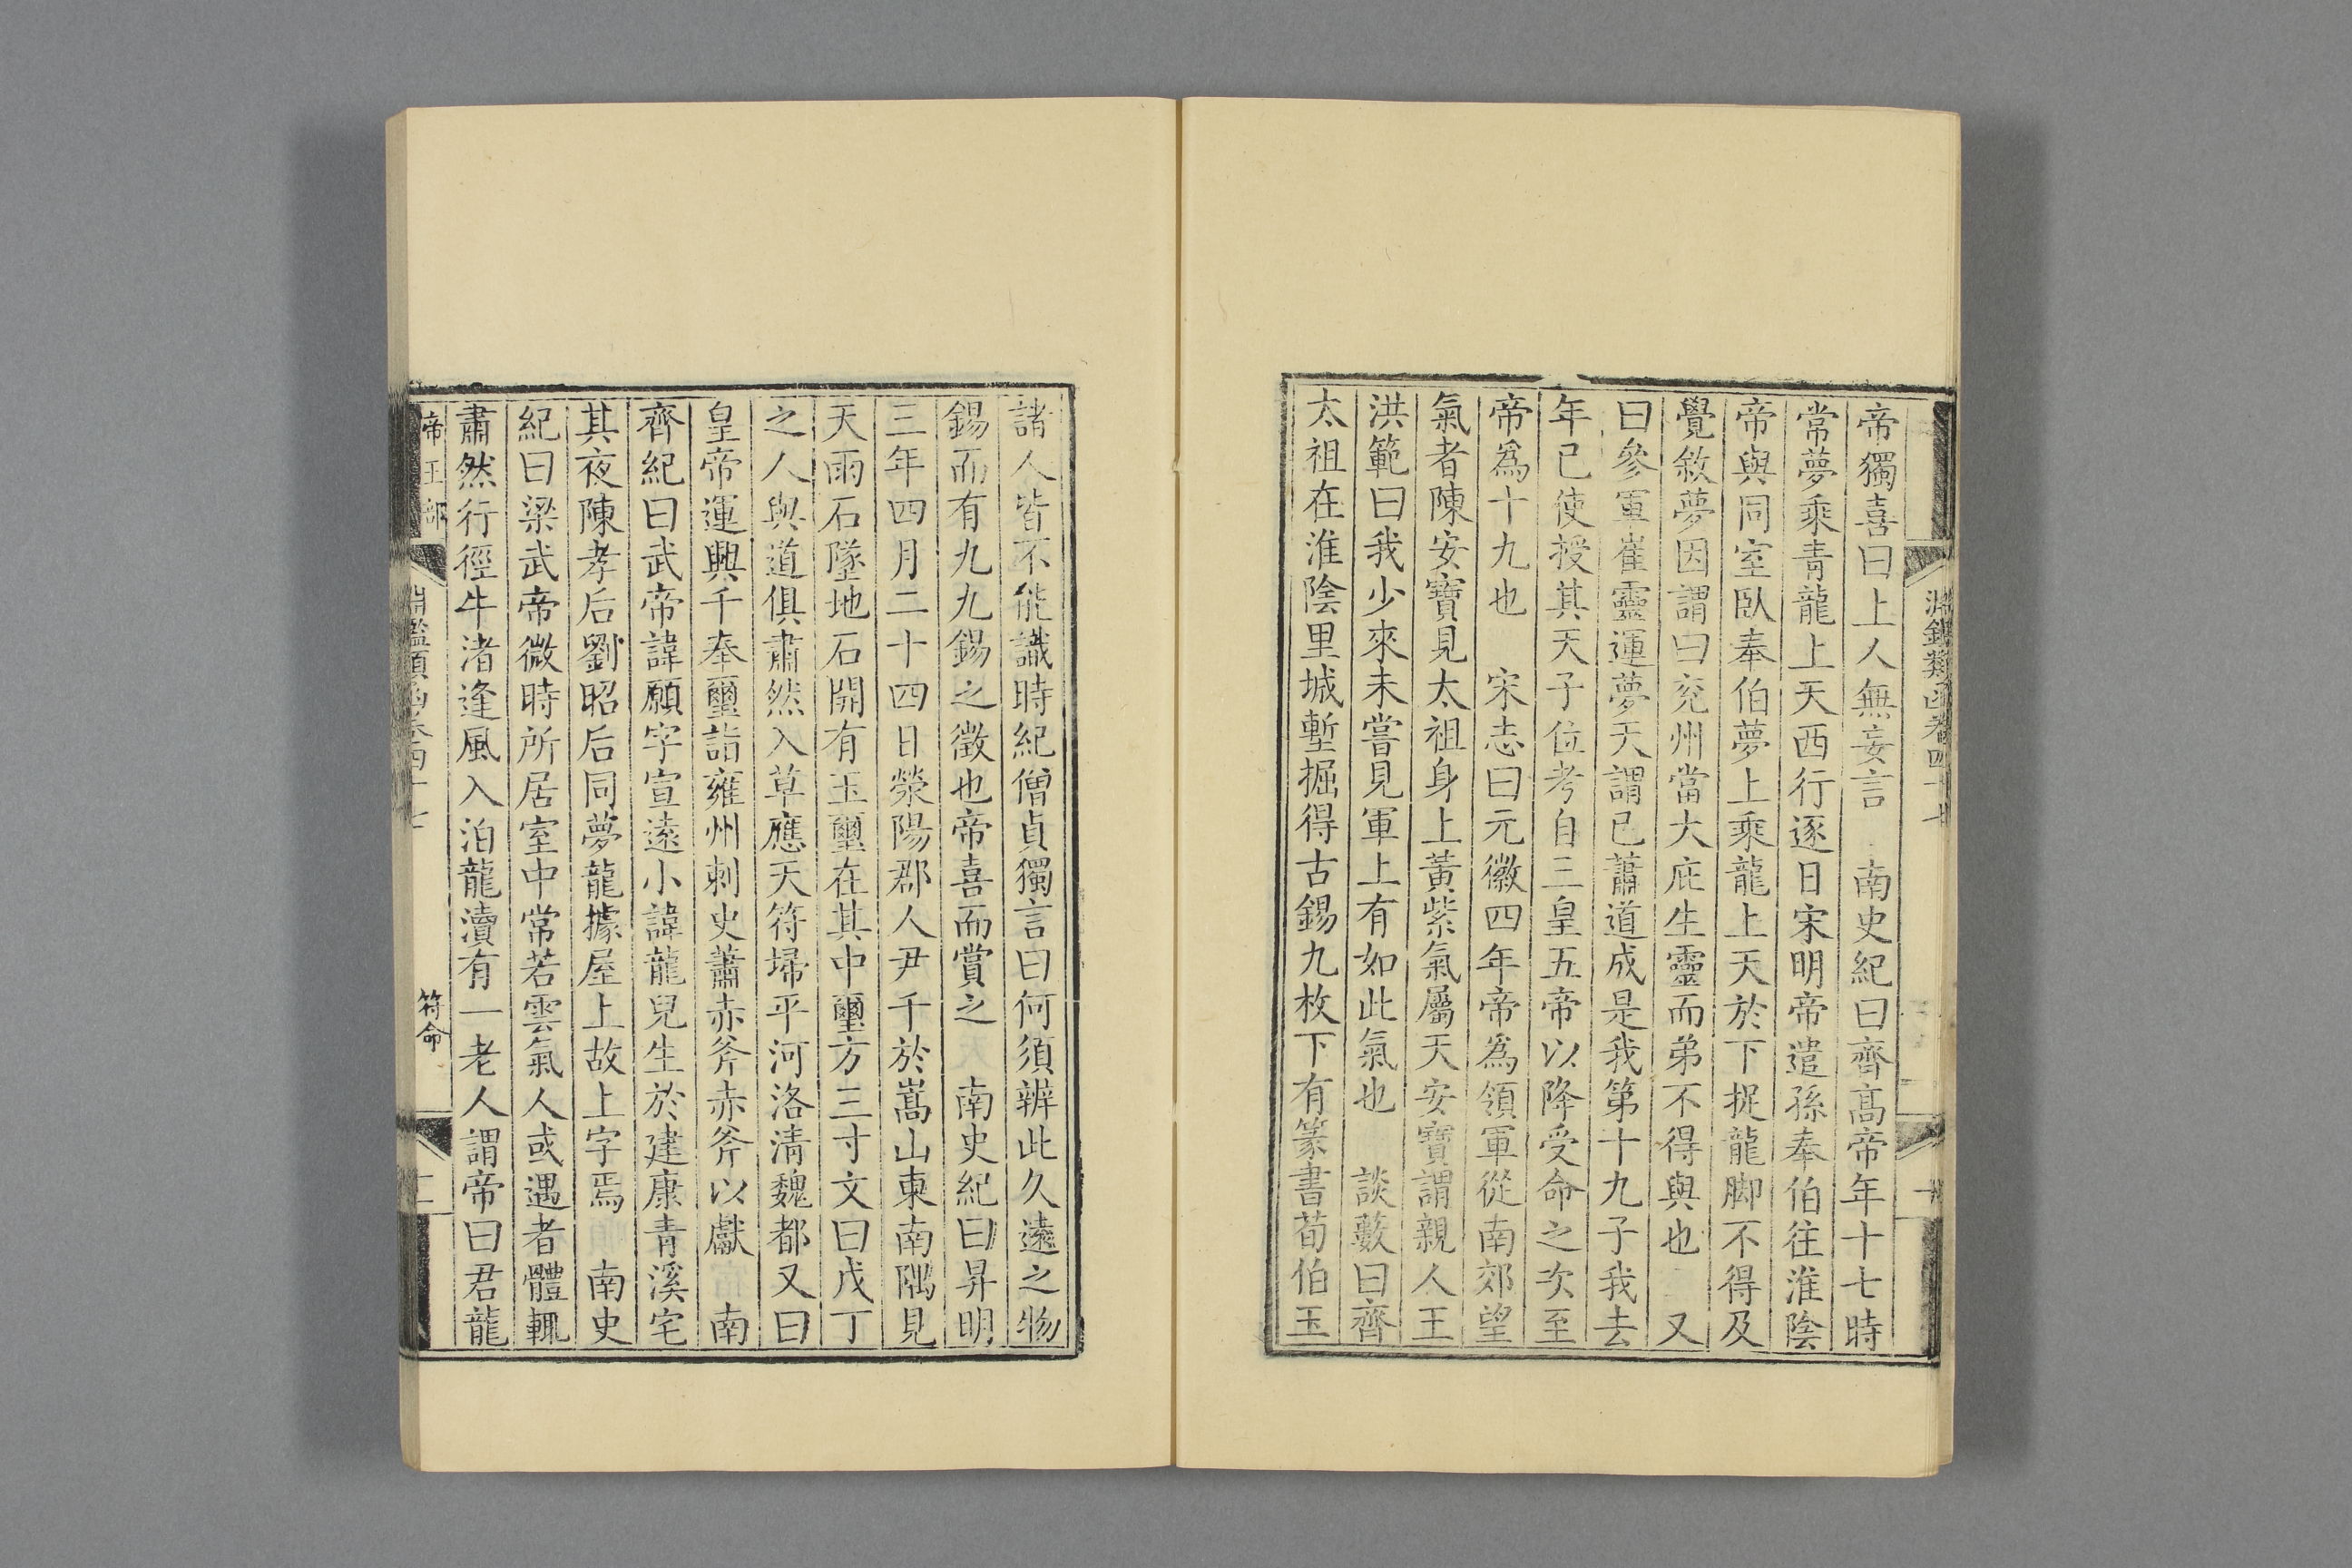 帝獨喜曰上人無妄言　南史紀曰齊高帝年十七時
常夢乘青龍上天西行逐日宋明帝遣孫奉伯往淮陰
帝與同室臥奉伯夢上乘龍上天於下捉龍脚不得及
覺敘夢因謂曰兗州當大庇生靈而弟不得與也　又
曰參軍崔靈運夢天謂己蕭道成是我第十九子我去
年已使授其天子位考自三皇五帝以降受命之次至
帝爲十九也　宋志曰元徽四年帝爲領軍從南郊望
氣者陳安寶見太祖身上黃紫氣屬天安寶謂親人王
洪範曰我少來未嘗見軍上有如此氣也　談藪曰齊
太祖在淮陰里城塹掘得古錫九枚下有篆書荀伯玉
諸人皆不能識時紀僧貞獨言曰何須辨此久遠之物
錫而有九九錫之徵也帝喜而賞之　南史紀曰昇明
三年四月二十四日滎陽郡人尹千於嵩山東南隅見
天雨石墜地石開有玉璽在其中璽方三寸文曰戊丁
之人與道俱肅然入草應天符埽平河洛清魏都又曰
皇帝運興千奉璽詣雍州刺史蕭赤斧赤斧以獻　南
齊紀曰武帝諱願字宣遠小諱龍兒生於建康青溪宅
其夜陳孝后劉昭后同夢龍據屋上故上字焉　南史
紀曰梁武帝微時所居室中常若雲氣人或遇者體輒
肅然行徑牛渚逢風入泊龍瀆有一老人謂帝曰君龍
帝王部
淵鑑類函卷四十七
符命
二